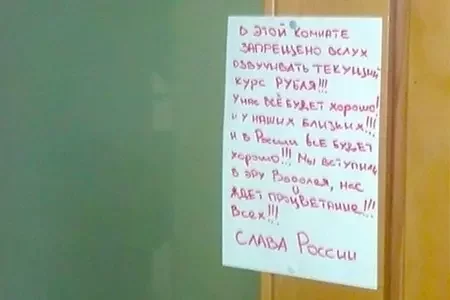 В ЭТОЙ КОМНАТЕ
ЗАПРЕЩЕНО ВСЛУХ
ОЗВУЧИВАТЬ ТЕКУЩИЙ
КУРС РУБЛЯ!!!
У НАС ВСЁ БУДЕТ ХОРОШО!
И У НАШИХ БЛИЗКИХ!!!
И В РОССИИ ВСЕ БУДЕТ
ХОРОШО!!! МЫ ВСТУПИЛИ
В ЭРУ ВОДОЛЕЯ, И НАС
ЖДЕТ ПРОЦВЕТАНИЕ!!!
ВСЕХ!!!
СЛАВА РОССИИ